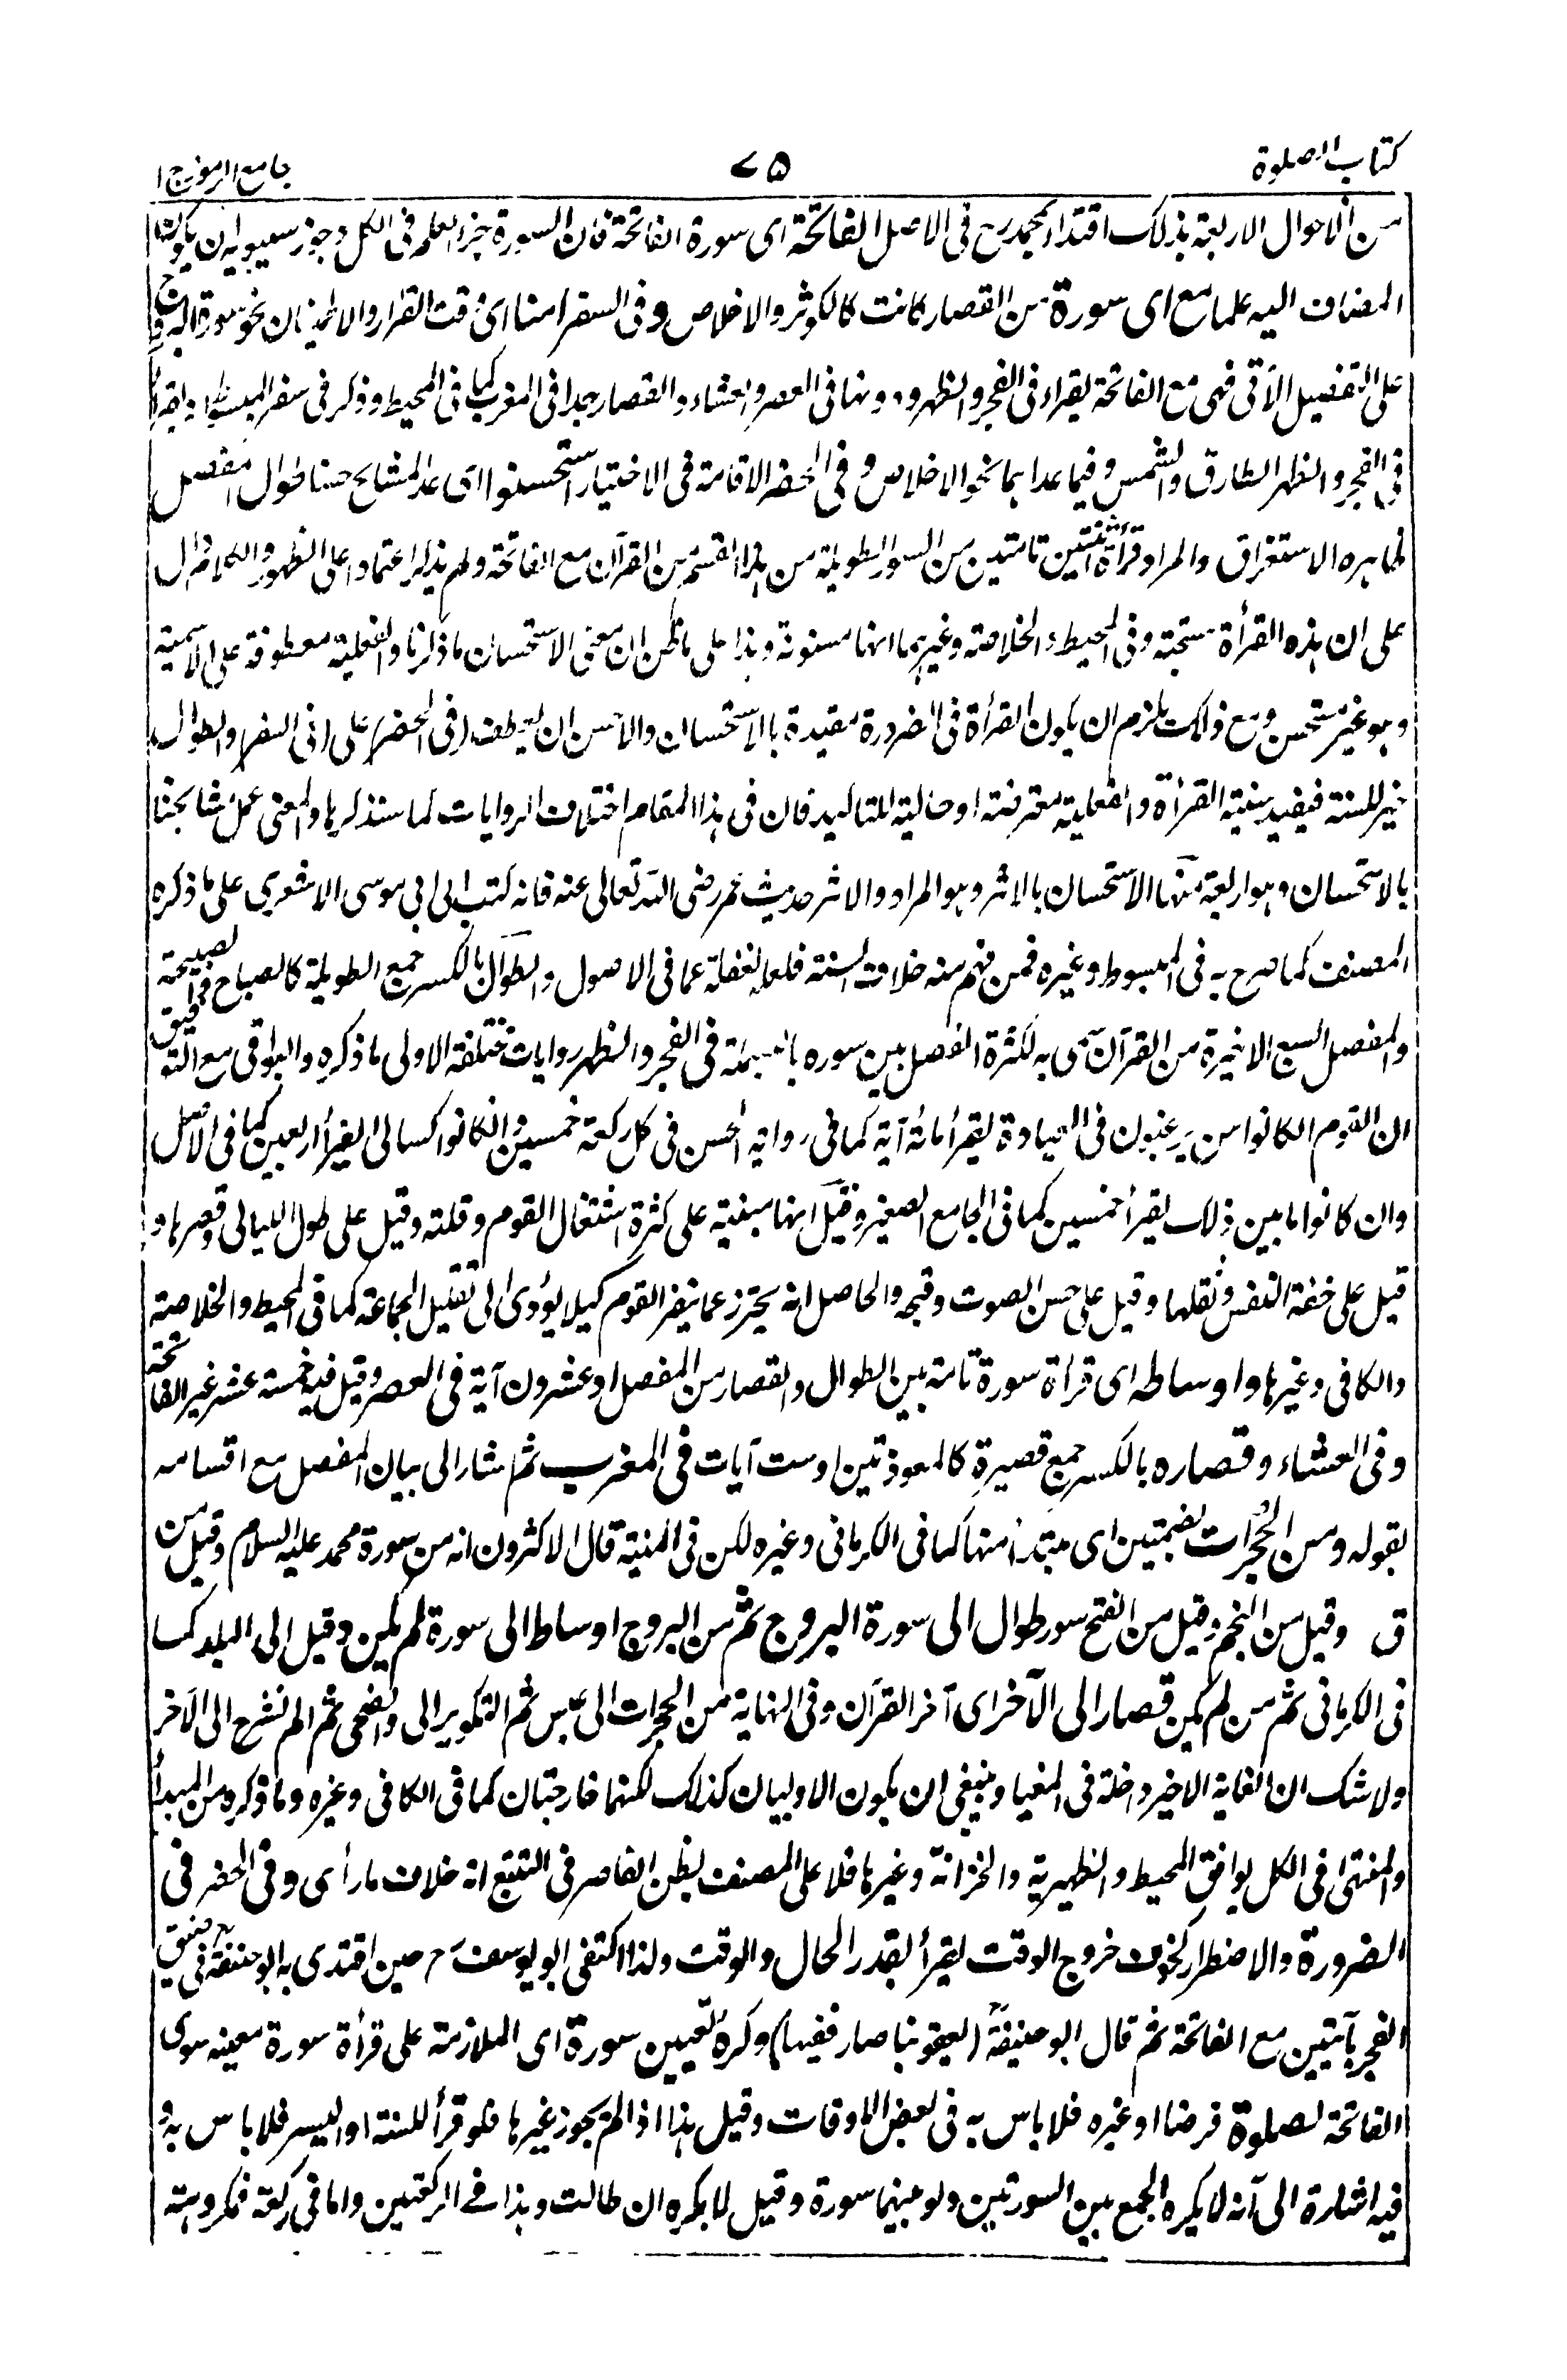 كتاب الصلوة
٧٥
جامع الرموز ج ١
من الاحوال الاربعة بذلك اقتداء بمحمد رح فى الاصل الفاتحة اى سورة الفاتحة فان السورة جزء العلم فى الكل وجوز سيبويه ان يكون
المضاف اليه علما مع اى سورة من القصار كانت كالكوثر والاخلاص وفى السفر امنا اى وقت القرار والاطمينان نحو سورة البروج
على التفصيل الآتى فهى مع الفاتحة يقراء فى الفجر والظهر ودونها فى العصر والعشاء والقصار جدا فى المغرب كما فى المحيط وذكر فى سفر المبسوط انه يقرأ
فى الفجر والظهر الطارق والشمس وفيما عداهما نحو الاخلاص و فى الحضر الاقامة فى الاختيار استحسنوا اى عد المشايخ حسنا طوال المفصل
ظاهره الاستغراق والمراد قرأة ثنتين تامتين من السور الطويلة من هذا القسم من القرآن مع الفاتحة ولم يذكر اعتمادا على الظهور والكلام دال
على ان هذه القرأة مستحبة وفى المحيط والخلاصة وغيرهما انها مسنونة وهذا على ما ظن ان معنى الاستحسان ما ذكرنا والفعلية معطوفة على الاسمية
وهو غير مستحسن ومع ذلك يلزم ان يكون القرأة فى الضرورة مقيدة بالاستحسان والاحسن ان يعطف (فى الحضر) على (فى السفر) والطوال
خبر للسنة فيفيد سنية القرأة والفعلية معترضة او حالية للتاكيد فان فى هذا المقام اختلاف الروايات كما سنذكرها والمعنى عمل مشايخنا
بالاستحسان وهو اربعة منها الاستحسان بالاثر وهو المراد والاثر حديث عمر رضى الله تعالى عنه فانه كتب الى ابى موسى الاشعرى على ما ذكره
المصنف كما صرح به فى المبسوط وغيره فمن فهم منه خلاف السنة فلعله لغفلة عما فى الاصول والطوال بالكسر جمع الطويلة كالصباح فى الصبيحة
والمفصل السبع الاخيرة من القرآن سمى به لكثرة الفصل بين سوره بالبسملة فى الفجر والظهر روايات مختلفة الاولى ما ذكره والبواقى مع التوفيق
ان القوم ان كانوا ممن يرغبون فى العبادة يقرأ مائة آية كما فى رواية الحسن فى كل ركعة خمسين وان كانوا كسالى يقرأ اربعين كما فى الاصل
وان كانوا ما بين ذلك يقرأ خمسين كما فى الجامع الصغير وقيل انها مبنية على كثرة اشتغال القوم وقلته وقيل على طول الليالى وقصرها و
قيل على خفة النفس وثقلها وقيل على حسن الصوت وقبحه والحاصل انه يحترز عما ينفر القوم كيلا يؤدى الى تقليل الجماعة كما فى المحيط والخلاصة
والكافى وغيرها واوساطه اى قرأة سورة تامة بين الطوال والقصار من المفصل او عشرون آية فى العصر وقيل فيه خمسة عشر غير الفاتحة
وفى العشاء وقصاره بالكسر جمع قصيرة كالمعوذتين او ست آيات فى المغرب ثم اشار الى بيان المفصل مع اقسامه
بقوله ومن الحجرات بضمتين اى مبتدأ منها كما فى الكرمانى وغيره لكن فى المنية قال الاكثرون انه من سورة محمد عليه السلام وقيل من
ق وقيل من النجم وقيل من الفتح سور طوال الى سورة البروج ثم من البروج اوساط الى سورة لم يكن وقيل الى البلد كما
فى الكرمانى ثم من لم يكن قصار الى الآخر اى آخر القرآن وفى النهاية من الحجرات الى عبس ثم التكوير الى والضحى ثم الم نشرح الى الآخر
ولا شك ان الغاية الاخير داخلة فى المغيا وينبغى ان يكون الاوليان كذلك لكنهما خارجتان كما فى الكافى وغيره وما ذكره من المبدأ
والمنتهى فى الكل يوافق المحيط والظهيرية والخزانة وغيرها فلا على المصنف بظن القاصر فى التتبع انه خلاف ما رأى وفى الحضر فى
الضرورة والاضطرار كخوف خروج الوقت يقرأ بقدر الحال والوقت ولذا اكتفى ابو يوسف رح حين اقتدى به ابو حنيفة رح فى ضيق
الفجر بآيتين مع الفاتحة ثم قال ابو حنيفة رح (يعقوبنا صار فقيها) وكره تعيين سورة اى الملازمة على قرأة سورة معينه سوى
الفاتحة لصلوة فرضا او غيره فلا باس به فى بعض الاوقات وقيل هذا اذا لم يجوز غيرها فلو قرأ للسنة او اليسر فلا باس به و
فيه اشارة الى انه لا يكره الجمع بين السورتين ولو بينهما سورة وقيل لا يكره ان طالت وهذا فى الركعتين واما فى ركعة فمكروهة